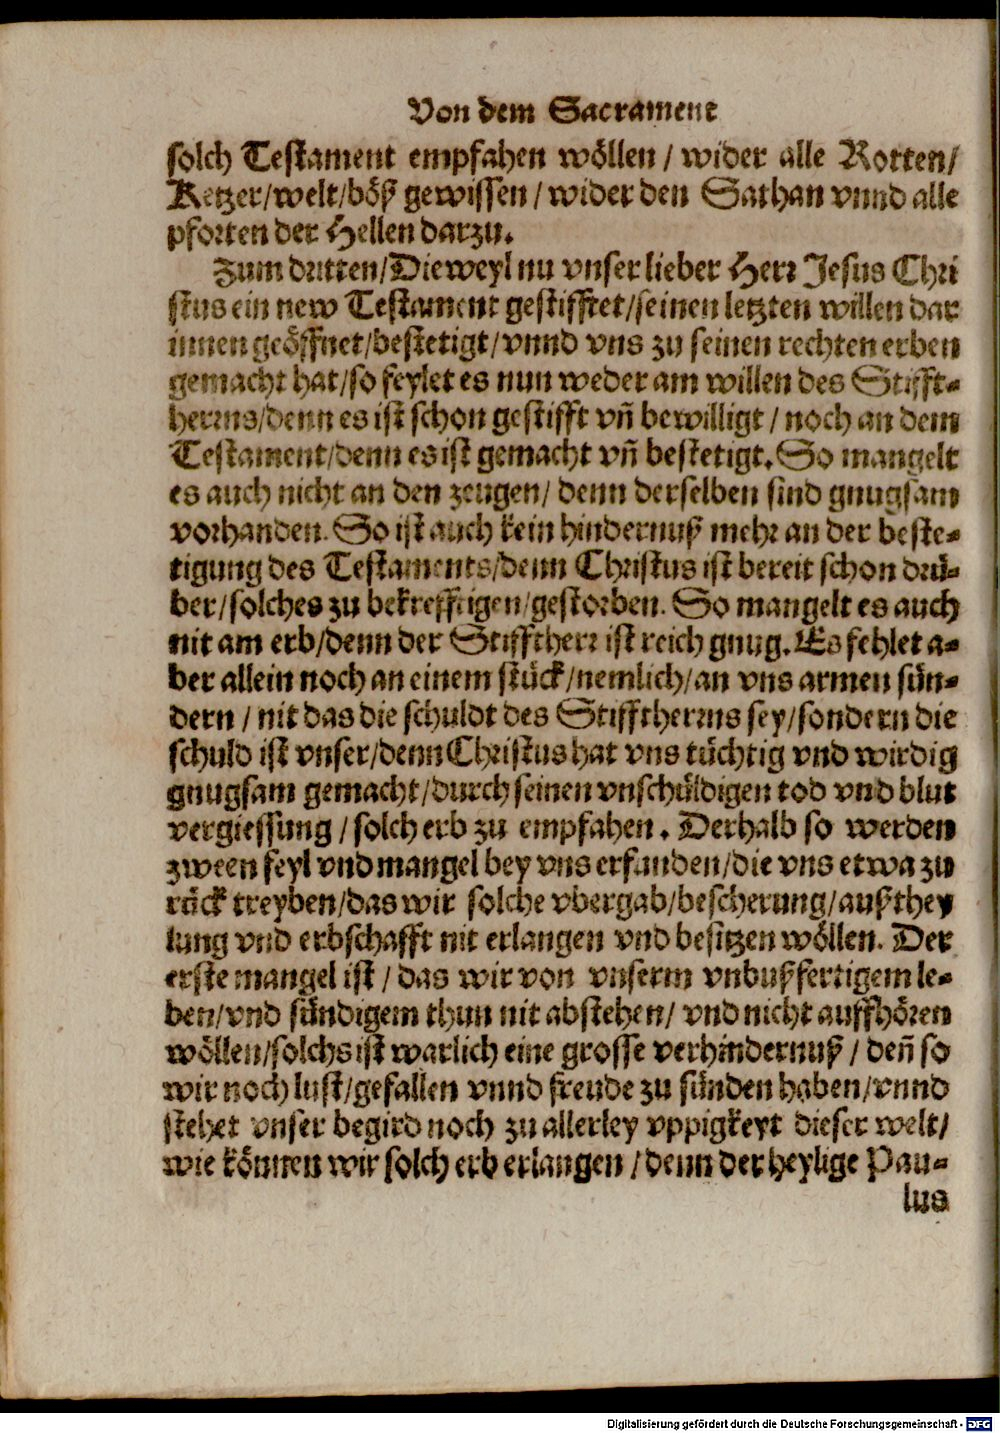 Von dem Sacrament
solch Testament empfahen wöllen / wider alle Rotten/
Ketzer/welt/böß gewissen / wider den Sathan vnnd alle
pforten der Hellen darzu.
Zum dritten/Dieweyl nu vnser lieber Herr Jesus Chri
stus ein new Testament gestifftet/seinen letzten willen dar
innen geöffnet/bestetigt/vnnd vns zu seinen rechten erben
gemacht hat/so feylet es nun weder am willen des Stifft⸗
herrns/denn es ist schon gestifft vñ bewilligt / noch an dem
Testament/denn es ist gemacht vñ bestetigt. So mangelt
es auch nicht an den zeugen/ denn derselben sind gnugsam
vorhanden. So ist auch kein hindernuß mehr an der beste⸗
tigung des Testaments/denn Christus ist bereit schon drü⸗
ber/solches zu bekrefftigen/gestorben. So mangelt es auch
nit am erb/denn der Stifftherr ist reich gnug. Es fehlet a⸗
ber allein noch an einem stück/nemlich/an vns armen sün⸗
dern / nit das die schuldt des Stifftherrns sey/sondern die
schuld ist vnser/denn Christus hat vns tüchtig vnd wirdig
gnugsam gemacht/durch seinen vnschüldigen tod vnd blut
vergiessung / solch erb zu empfahen. Derhalb so werden
zween feyl vnd mangel bey vns erfunden/die vns etwa zu
rück treyben/das wir solche vbergab/bescherung/außthey
lung vnd erbschafft nit erlangen vnd besitzen wöllen. Der
erste mangel ist / das wir von vnserm vnbußfertigem le⸗
ben/vnd sündigem thun nit abstehen/ vnd nicht auffhören
wöllen/solchs ist warlich eine grosse verhindernuß / deñ so
wir noch lust/gefallen vnnd freude zu sünden haben/vnnd
stehet vnser begird noch zu allerley vppigkeyt dieser welt/
wie könten wir solch erb erlangen / denn der heylige Pau⸗
lus
Digitalisierung gefördert durch die Deutsche Forschungsgemeinschaft - DFG